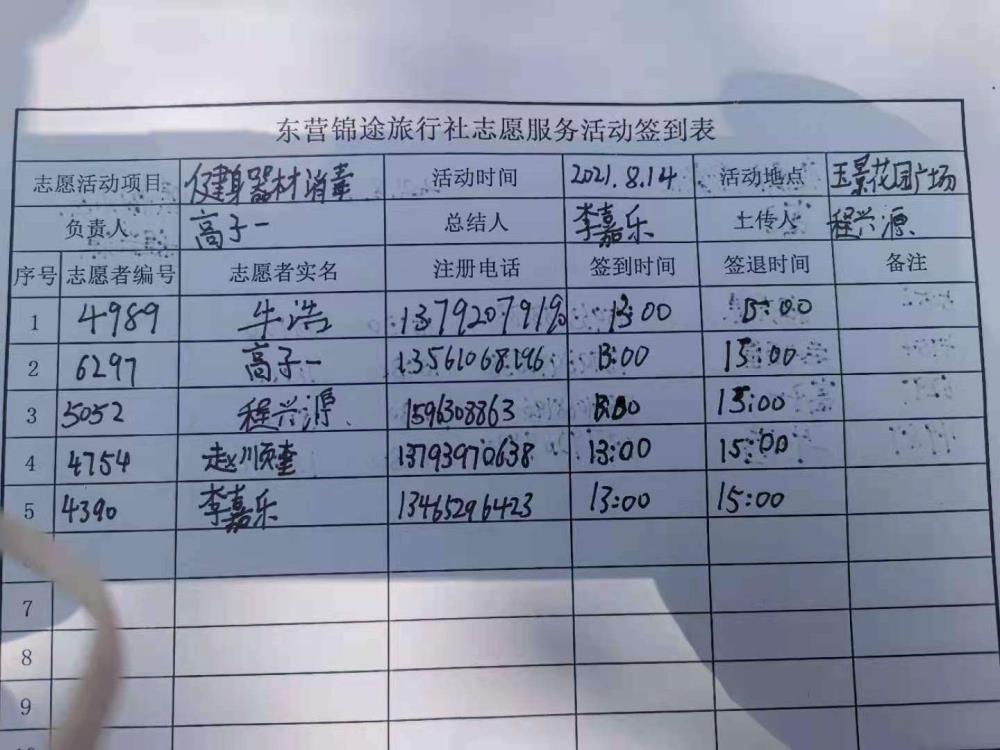 东营锦途旅行社志愿服务活动签到表
志愿活动项目 健身器材消毒 活动时间 2021.8.14 活动地点 玉景花园广场
负责人 高子一 总结人 李嘉乐 土传人 程兴源
序号 志愿者编号 志愿者实名 注册电话 签到时间 签退时间 备注
1 4989 牛浩 13:00 15:00
2 6297 高子一 13:00 15:00
3 5052 程兴源 1596308863 13:00 15:00
4 4754 赵顺奎 13793970638 13:00 15:00
5 4390 李嘉乐 13465296423 13:00 15:00
7
8
9